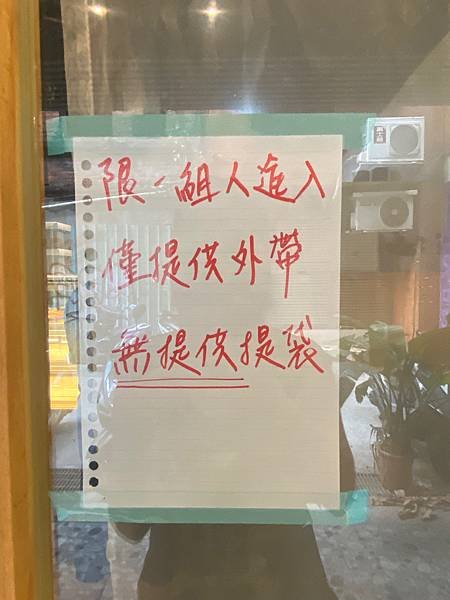 限一組人進入
僅提供外帶
無提供提袋